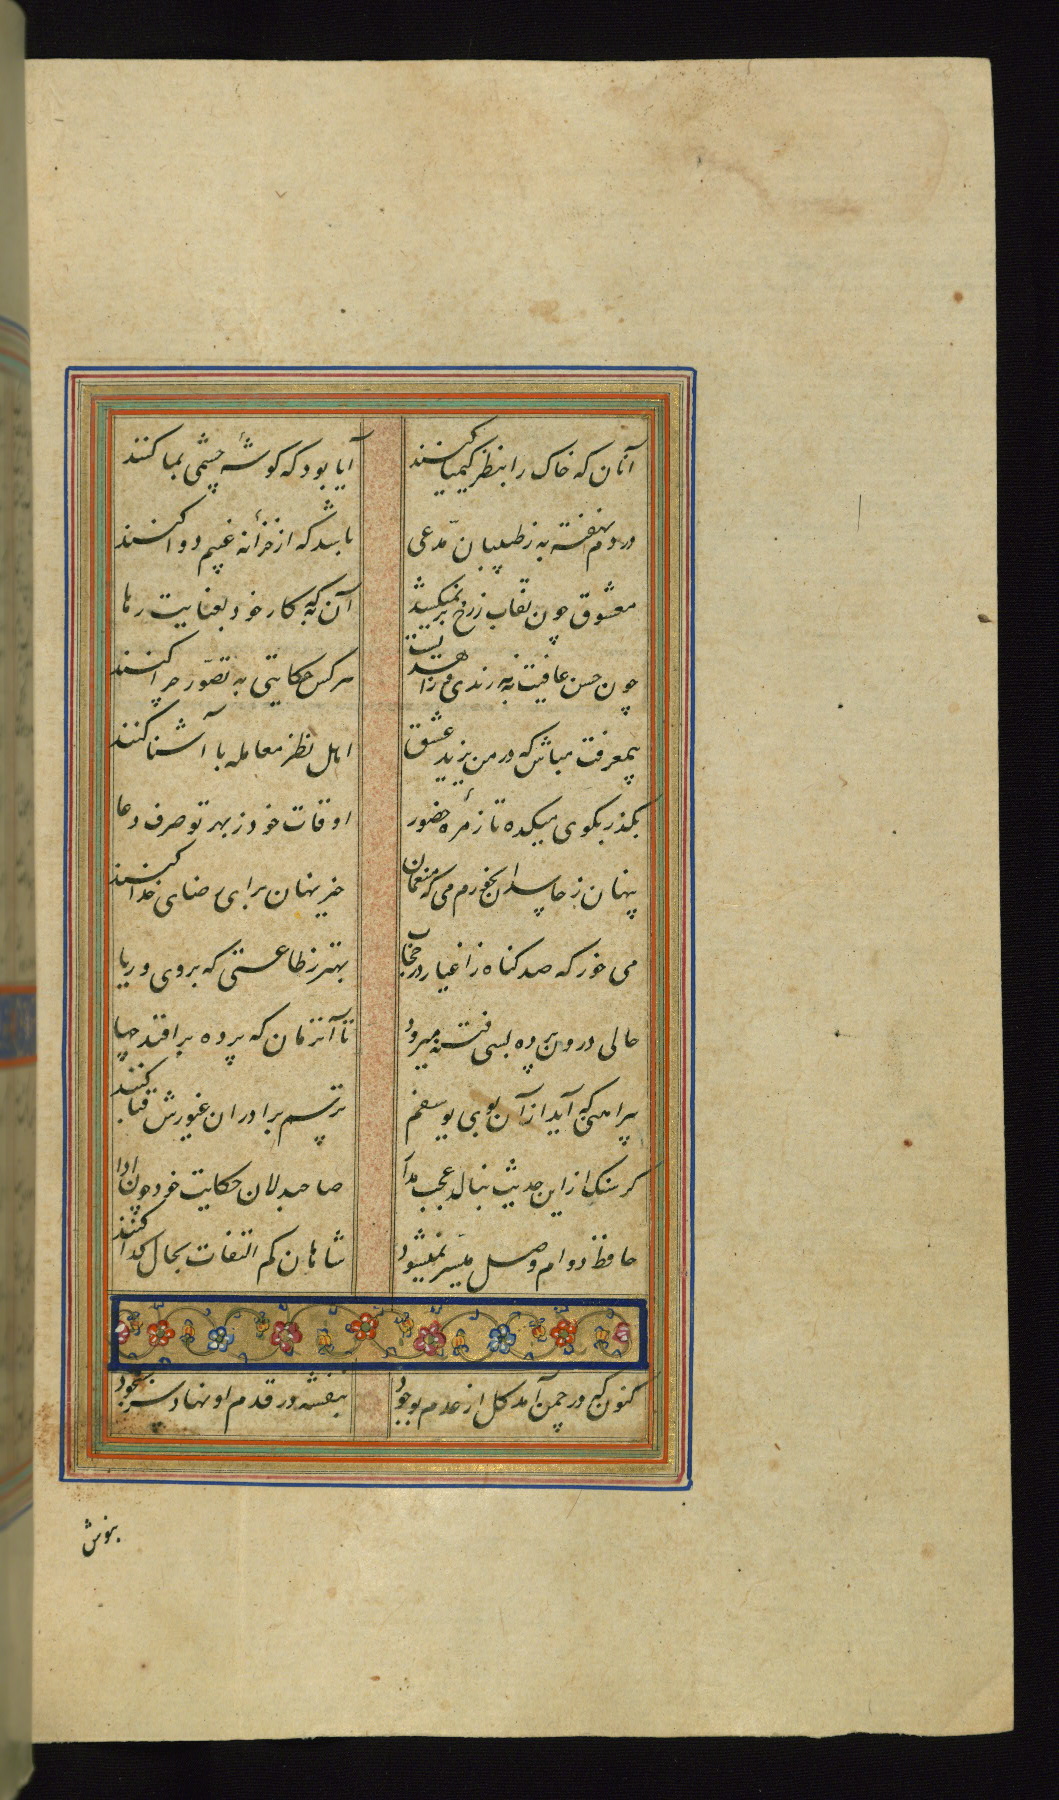 آنان که خاک را بنظر کیمیا کنند آیا بود که کوشهٔ چشمی بما کنند
دردم نهفته به ز طبیبان مدّعی باشد که از خزأنه غیبم دوا کنند
معشوق چون نقاب ز رخ برنمیکشد آن به که کار خود بعنایت رها
چون حسن عافیت نه به رندی و زاهدیست هرکس حکایتی به تصوّر چرا کنند
بیمعرفت مباش که در من یزید عشق اهل نظر معامله با آشنا کنند
بگذر بکوی میکده تا زمرهٔ حضور اوقات خود ز بهر تو صرف دعا
پنهان ز حاسدان بخورم می که منعمان خیر نهان برای رضای خدا کنند
می خور که صد کناه ز اغیار در حجاب بهتر ز طاعتی که بروی و ریا
حالی درون پرده بسی فتنه میرود تا آنزمان که پرده برافتد چها
پیراهنی که آید از آن بوی یوسفم ترسم برادران غیورش قبا کنند
کر سنک ازین حدیث بنالد عجب مدار صاحبدلان حکایت خود چون ادا
حافظ دوام وصل میسّر نمیشود شاهان کم التفات بحال کدا کنند
کنون که در چمن آمد کل از عدم بوجود بنفشه در قدم او نهاد سر بسجود
بنوش